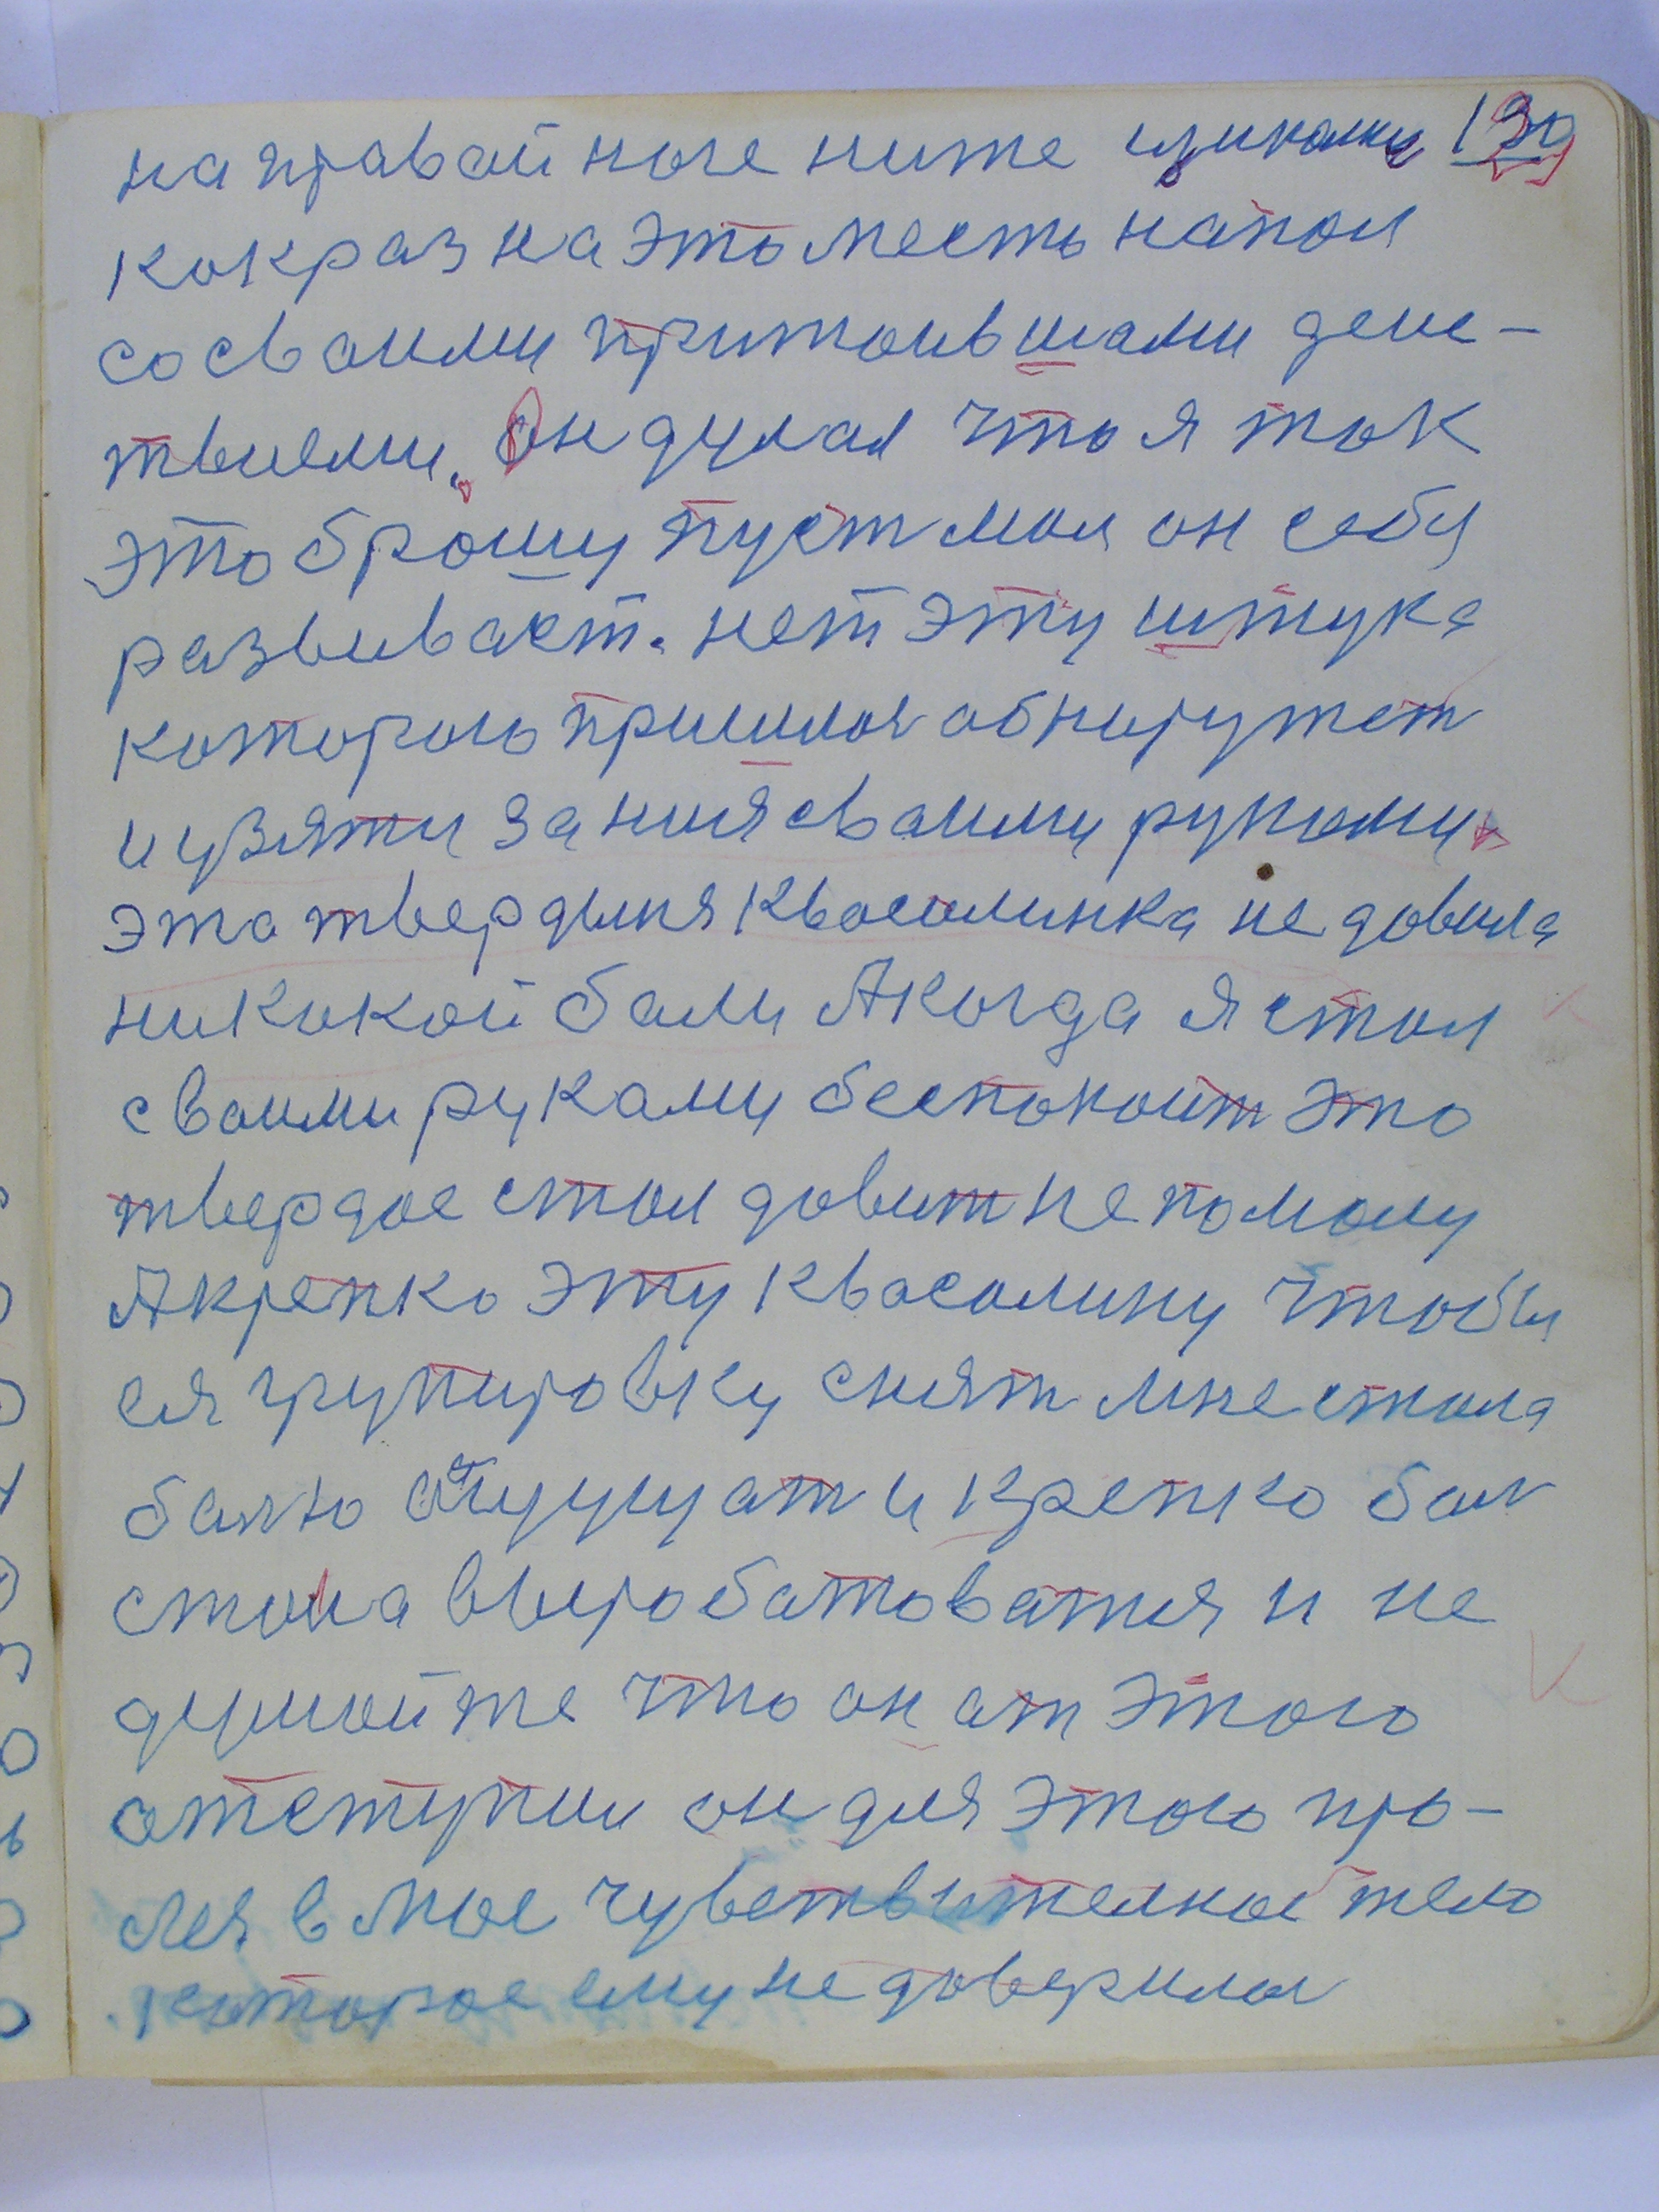 на правай ноге ниже щиколки 139
какраз на это место напал
со сваими притаившами деис-
твиеми. Он думал что я так
это брошу пуст мол он себя
развивает. нет эту штука
которою пришлос обнаружет
и узяти за ния сваими руками
эта твердыня квасалинка не давила
никакой боли А когда я стал
сваими руками беспокоит это
твердое стал давит не помалу
А крепко эту квасалину чтобы
ея групировку снят мне стала
болно отчущат и крепко бол
стала выробатоватся и не
думайте что он от этого
отступил он для этого про-
лез в мое чувствителное тело
которое ему не доверилос